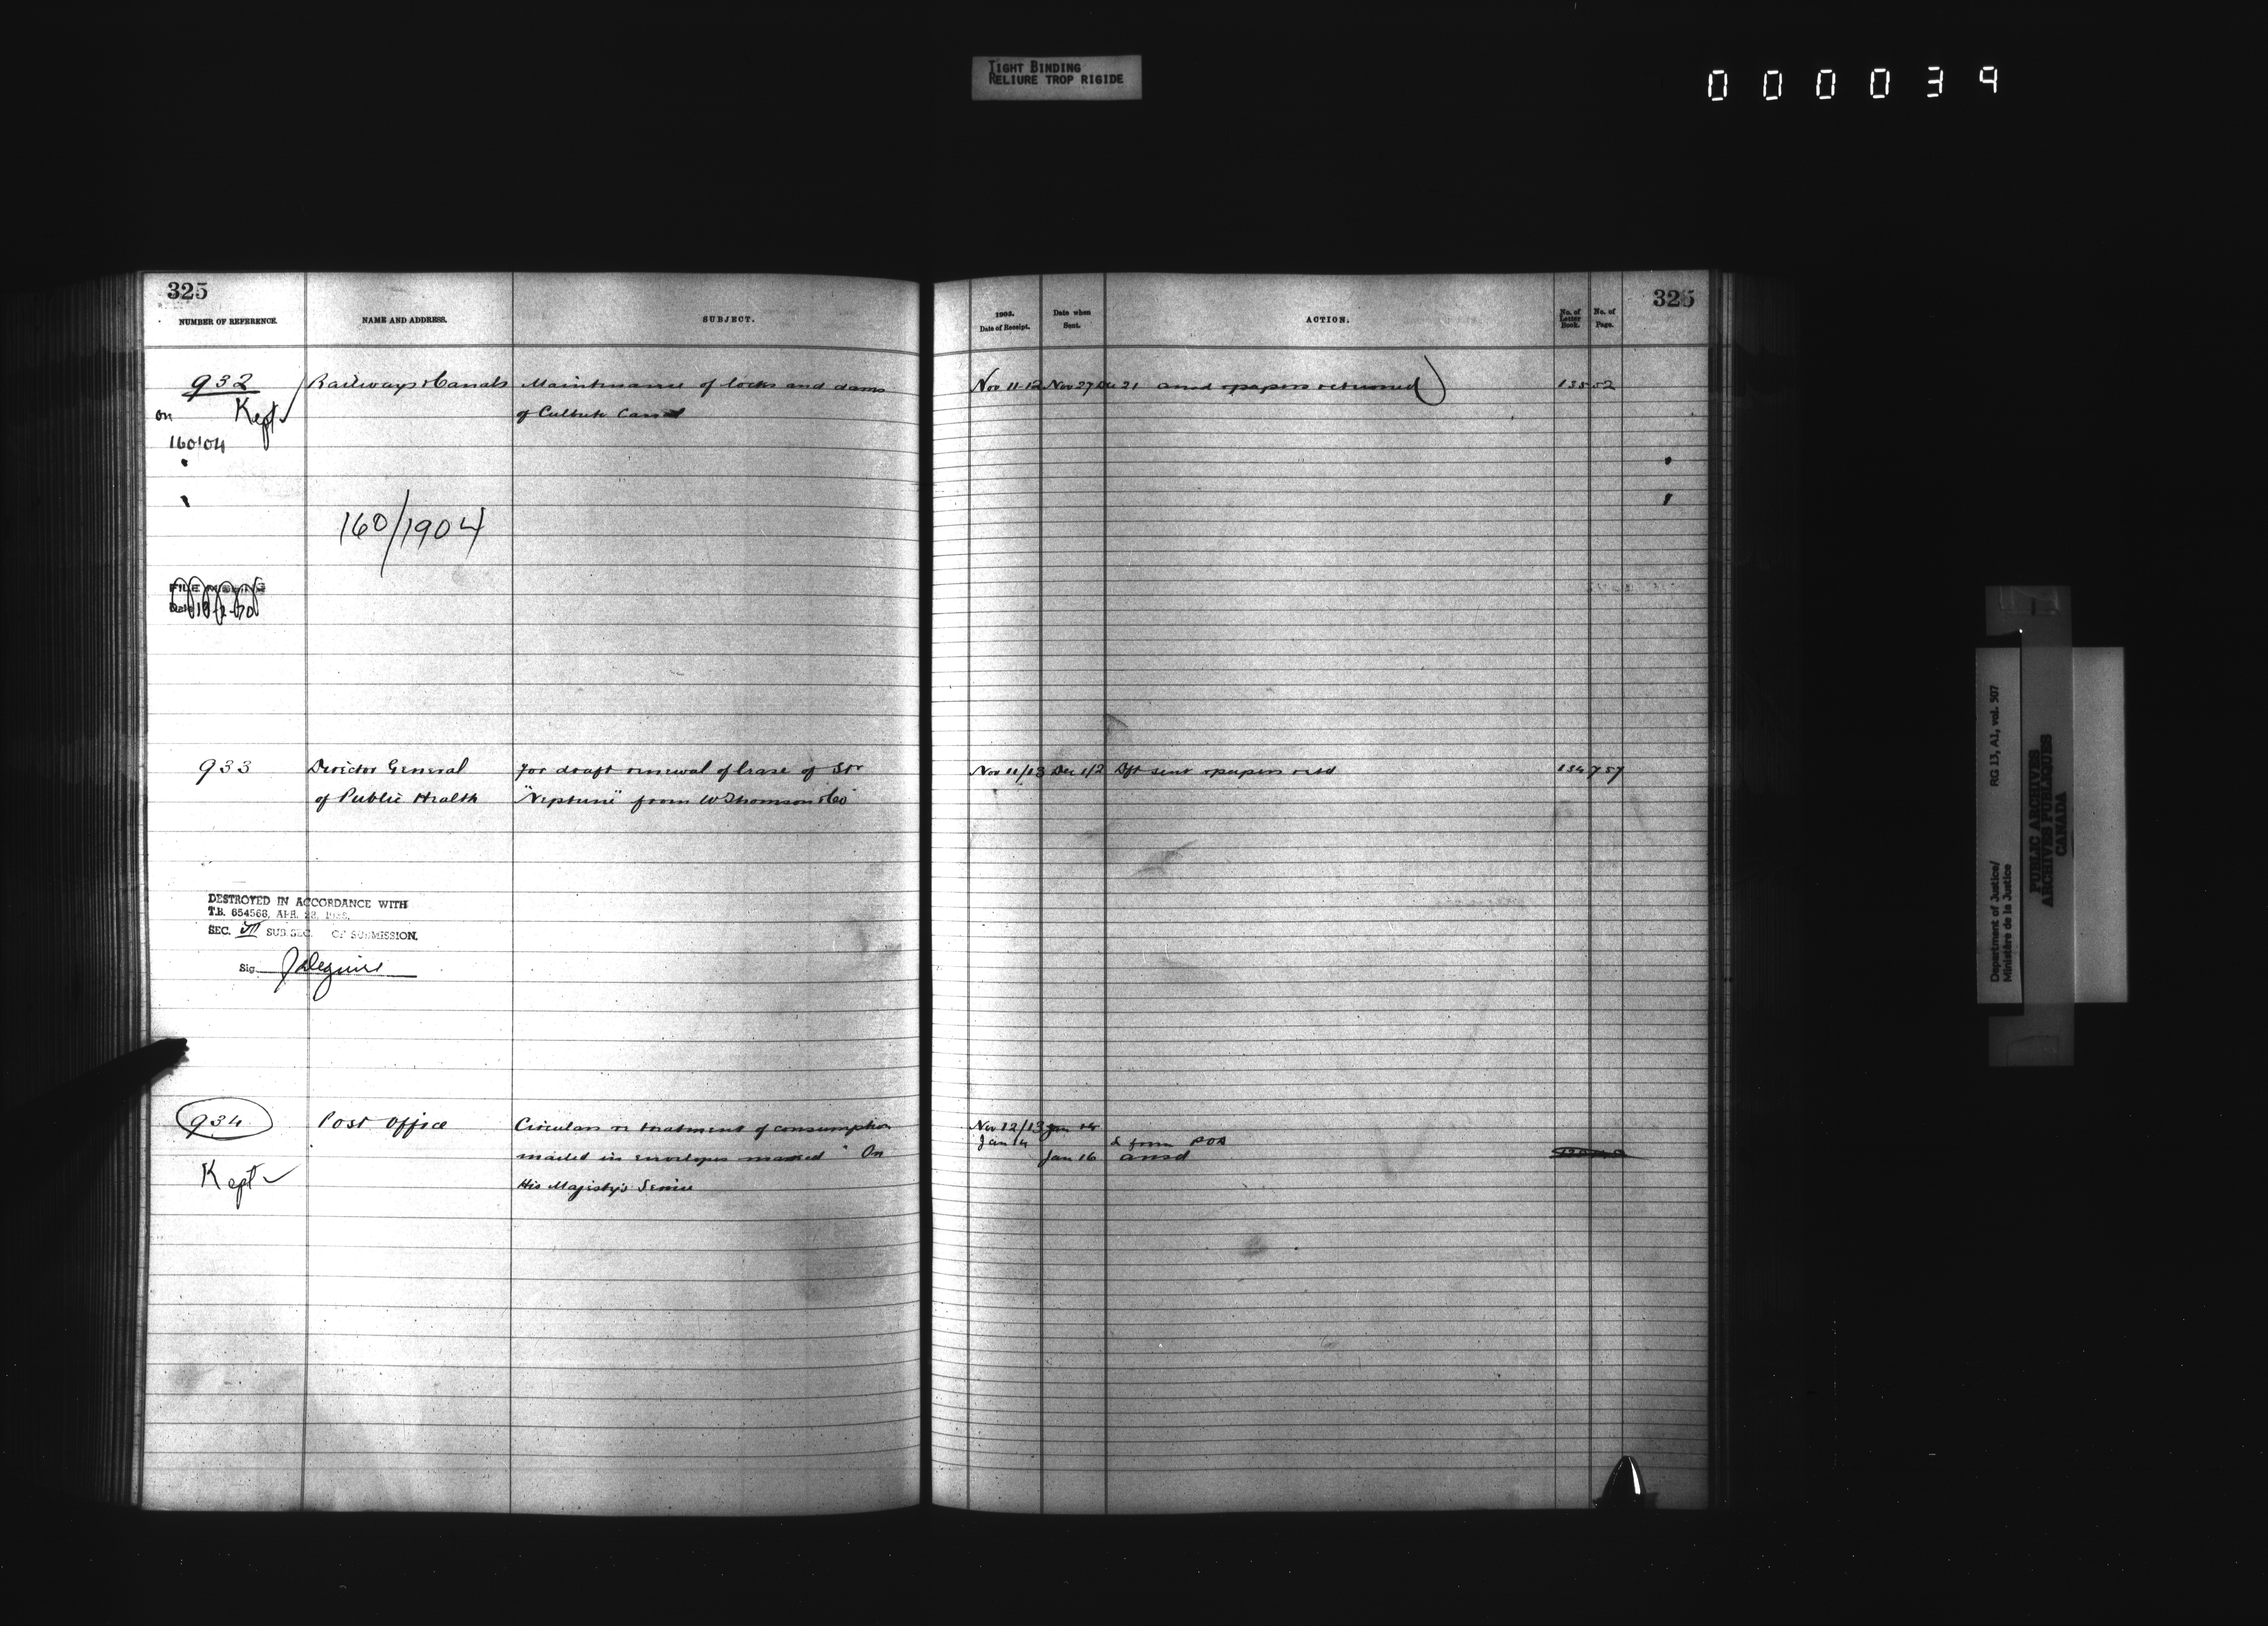 TIGHT BINDING
RELIURE TROP RIGIDE
000039
325
NUMBER OF REFERENCE.
NAME AND ADDRESS.
SUBJECT.
932
Railways & Canals
Maintenance of locks and dams
on
Kept
of Culbute Canal
160/04
160/1904
FILE MISSING
933
Director General
for draft renewal of lease of Str
of Public Health
"Neptune" from W Thomson & Co
DESTROYED IN ACCORDANCE WITH
T.B. 654568, APR. 28,
SEC. VII SUB SEC. OF SUBMISSION.
Sig.
934
Post Office
Circulars re treatment of consumption
mailed in envelopes marked "On
Kept
His Majesty's Service
325
1903.
Date of Receipt.
Date when
Sent.
ACTION.
No. of
Letter
Book.
No. of
Page.
Nov 11-12 Nov 27 Dec 21 ansd & papers returned
135 52
Nov 11/13 Dec 1/2 Dft sent & papers retd
134 757
Nov 12/13
Jan 14
& from POD
Jan 16 ansd
Department of Justice/
Ministère de la Justice
RG 13, A1, vol. 507
PUBLIC ARCHIVES
ARCHIVES PUBLIQUES
CANADA